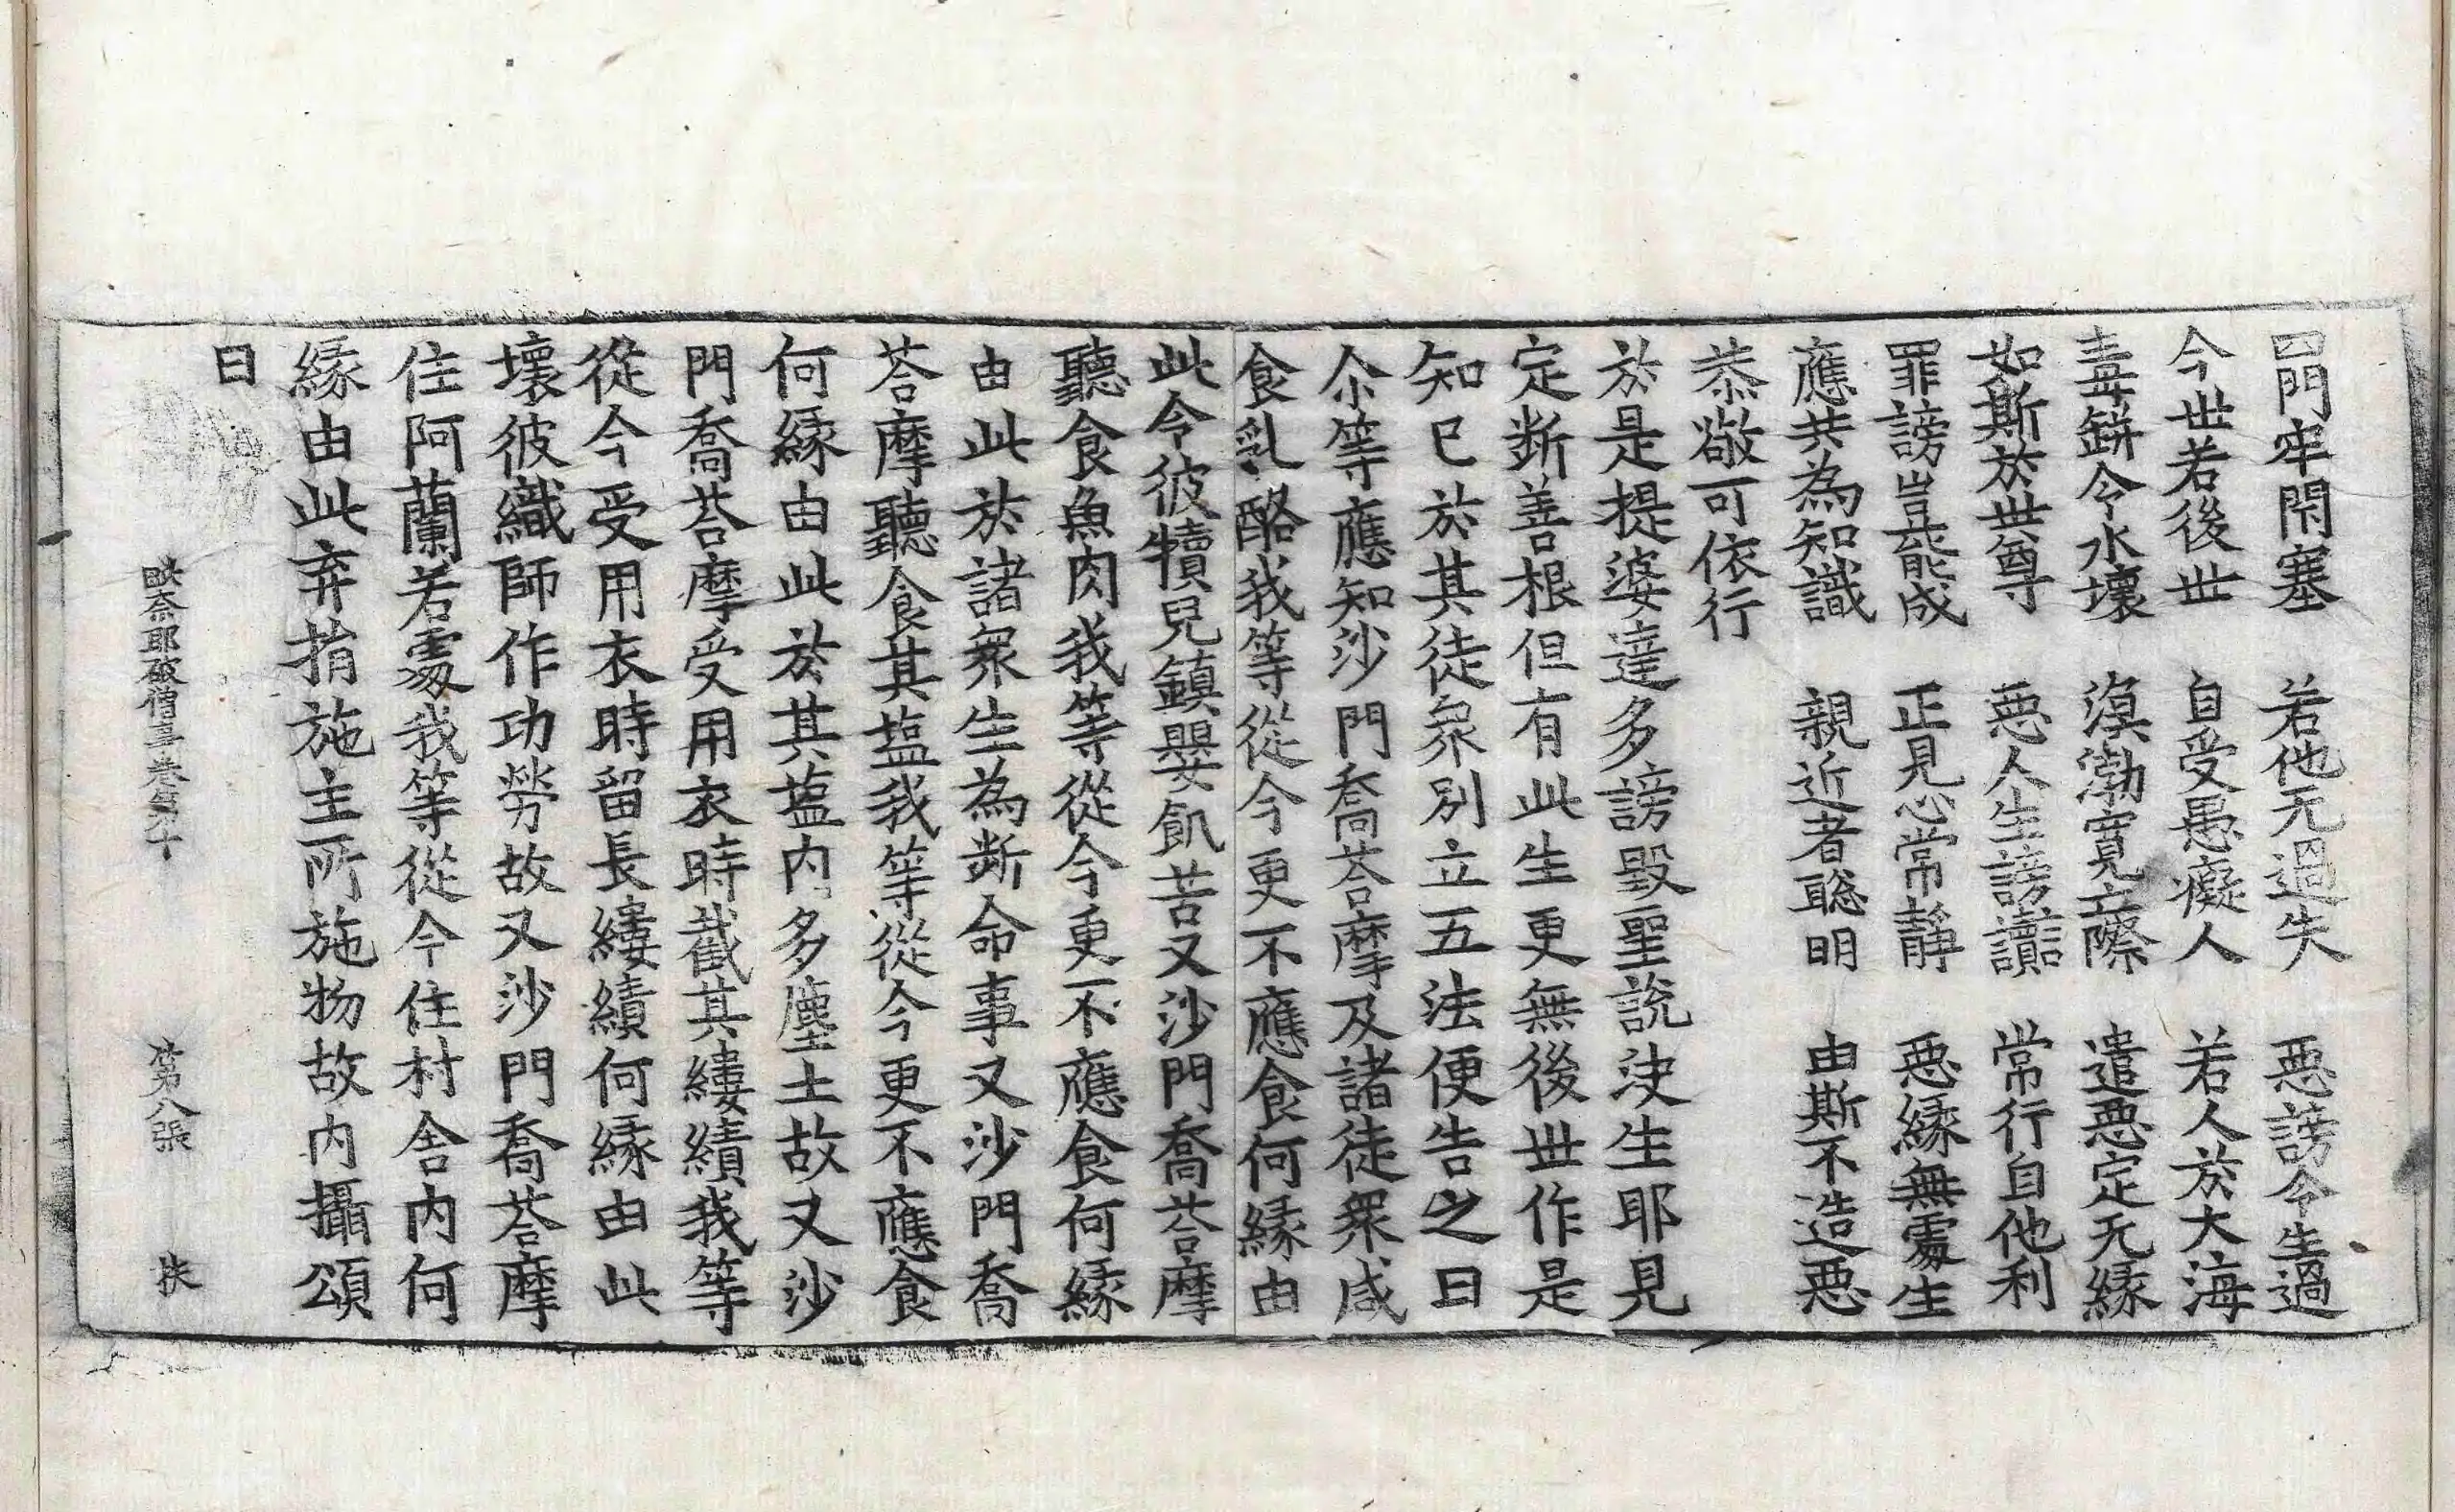 四門牢閇塞　若他无過失　惡謗令生過
今世若後世　自受愚癡人　若人於大海
毒鉼令水壞　溟渤寬立際　遣惡定无緣
如斯於世尊　惡人生謗讟　常行自他利
罪謗豈能成　正見心常靜　惡緣無處生
應共為知識　親近者聡明　由斯不造惡
恭敬可依行
於是提婆達多謗毀聖說決生耶見
定断善根但有此生更無後世作是
知已於其徒衆別立五法便告之曰
尒等應知沙門喬荅摩及諸徒衆咸
食乳酪我等從今更不應食何緣由
此令彼犢兒鎮嬰飢苦又沙門喬荅摩
聽食魚肉我等從今更不應食何緣
由此於諸衆生為断命事又沙門喬
荅摩聽食其塩我等從今更不應食
何緣由此於其塩内多塵土故又沙
門喬荅摩受用衣時截其縷績我等
從今受用衣時留長縷績何緣由此
壞彼織師作功勞故又沙門喬荅摩
住阿蘭若處我等從今住村舍内何
緣由此弃捐施主所施物故内攝頌
曰
奈耶破僧事卷第十　第八張　扶